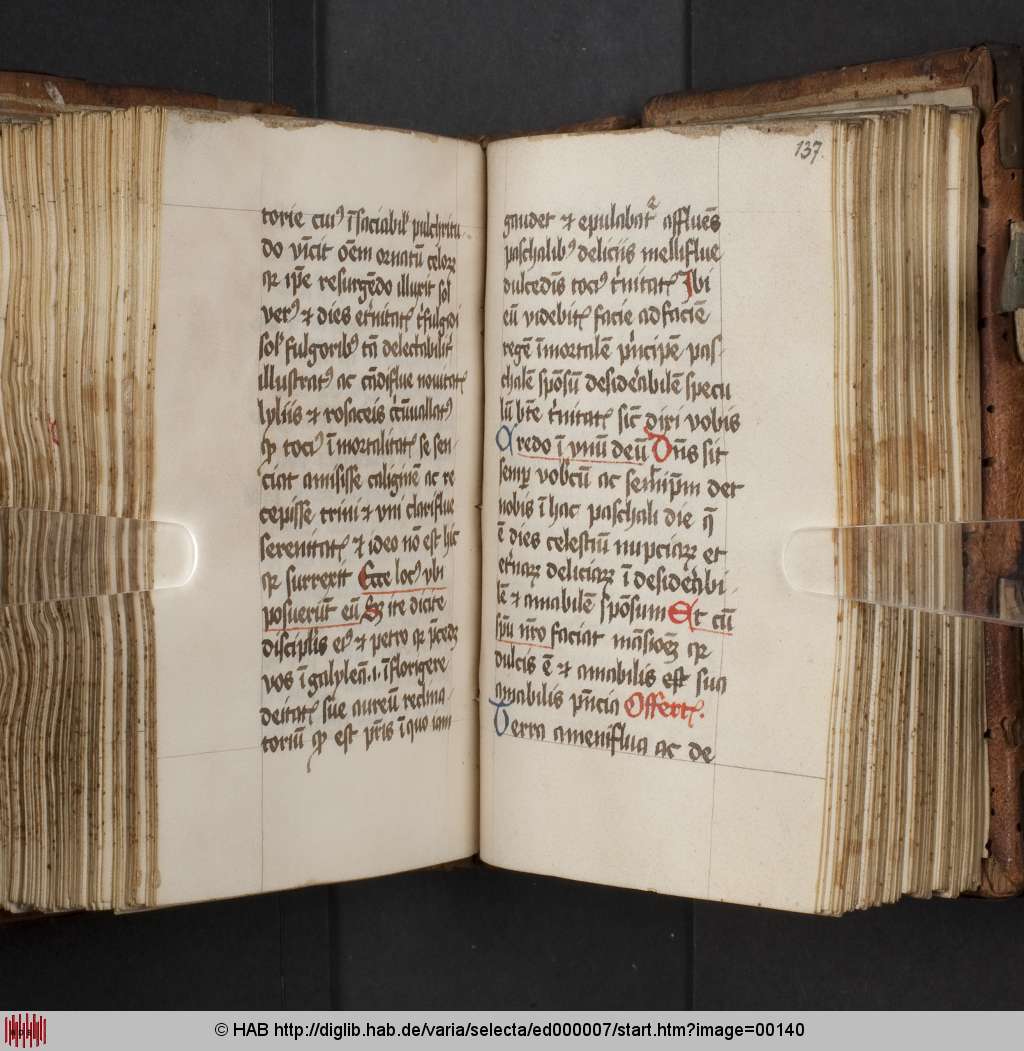 torie cuiꝰ ī saciabił pulchritu-
do vīcit oēm ornatū celoꝝ
qꝛ ip̄e resurgēdo illuxit sol
verꝰ ⁊ dies et̓nitatꝭ
sol̓ fulgoribꝰ tā delectabilit̓
illustratꝰ ac cādiflue nouitatꝭ
lyliis ⁊ rosaceis ccūuallatꝰ
ꝙ tociꝰ īmortalitatꝭ se sen-
ciat amisisse caliginē ac re
cepisse trini ⁊ vni clariflue
serenitatꝭ ⁊ ideo nō est hic
qꝛ surrexit Ecce locꝰ vbi
posuerūt eū Sꝫ ite dicite
disciplis eiꝰ ⁊ petro qꝛ p̄cedꝫ
vos ī galyleā .i. ī florigere
deitatꝭ sue aureū reclina-
toriū ꝙ est pr̄is ī quo iam
137.
gaudet ⁊ epulabat᷑ affluēs
paschalibꝰ deliciis melliflue
dulcedīs tociꝰ t̓nitatꝭ Ibi
eū videbitꝭ facie ad faciē
regē īmortalē p̓ncipē pas-
chalē spōsū desiderabilē specu
lū bt̄e t̓nitatꝭ sic̄ dixi vobis
Credo ī vnū deū Dn̄s sit
semꝑ vobcū ac semetip̄m det
nobis ī hac paschali die q̄
ē dies celestiū nupciaꝝ et
et̓naꝝ deliciaꝝ ī desiderabi
lē ⁊ amabilē spōsum Et cū
spū tuo faciat māsionē qꝛ
dulcis ē ⁊ amabilis est sua
amabilis p̄ncia Offertꝭ.
Terra ameniflua ac de
© HAB http://diglib.hab.de/varia/selecta/ed000007/start.htm?image=00140